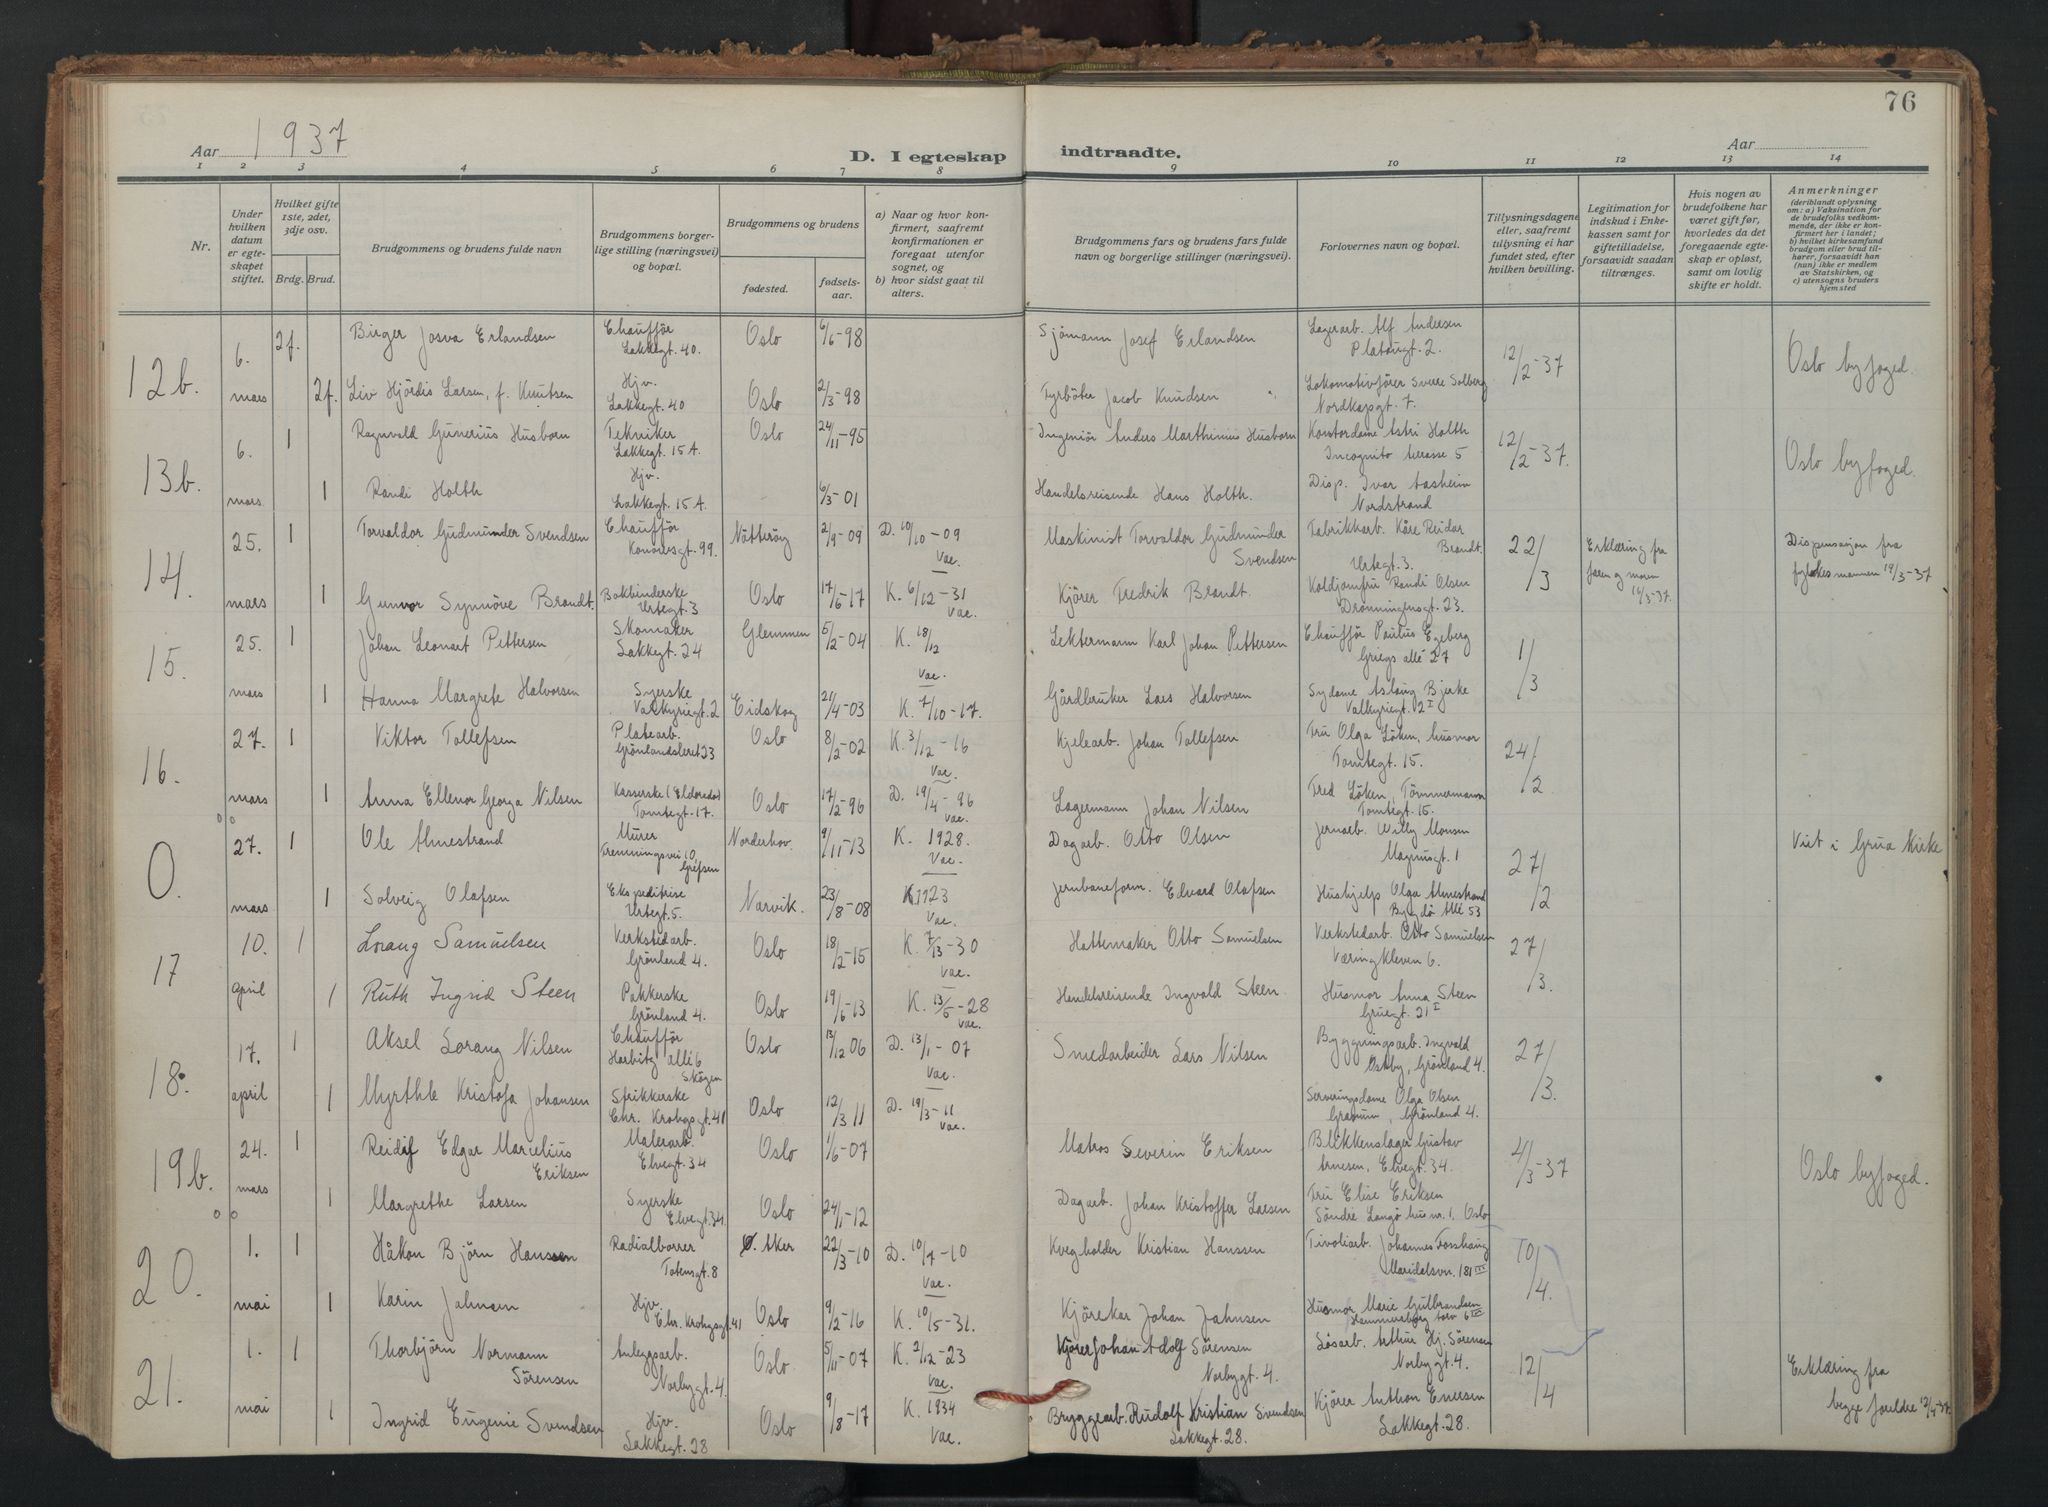 76
Aar 1937
D. I egteskap indtraadte.
Aar
1 2 3 4 5 6 7 8 9 10 11 12 13 14
Nr.
Under hvilken datum er egteskapet stiftet.
Hvilket gifte 1ste, 2det, 3dje osv.
Brdg. Brud.
Brudgommens og brudens fulde navn
Brudgommens borgerlige stilling (næringsvei) og bopæl.
Brudgommens og brudens
fødested.
fødselsaar.
a) Naar og hvor konfirmert, saafremt konfirmationen er foregaat utenfor sognet, og
b) hvor sidst gaat til alters.
Brudgommens fars og brudens fars fulde navn og borgerlige stillinger (næringsvei).
Forlovernes navn og bopæl.
Tillysningsdagene eller, saafremt tillysning ei har fundet sted, efter hvilken bevilling.
Legitimation for indskud i Enkekassen samt for giftetilladelse, forsaavidt saadan tiltrænges.
Hvis nogen av brudefolkene har været gift før, hvorledes da det foregaaende egteskap er opløst, samt om lovlig skifte er holdt.
Anmerkninger (deriblandt oplysning om: a) Vaksination for de brudefolks vedkommende, der ikke er konfirmert her i landet; b) hvilket kirkesamfund brudgom eller brud tilhører, forsaavidt han (hun) ikke er medlem av Statskirken, og c) utensogns bruders hjemsted
12b. 6. mars 2f. Birger Josva Erlandsen Chaufför Lakkegt. 40. Oslo 6/6-98 Sjömann Josef Erlandsen Lagerarb. Alf Andersen Platougt. 2. 12/2-37 Oslo byfoged.
2f. Liv Hjördis Larsen, f. Knutsen Hjv. Lakkegt. 40 Oslo 2/3-98 Fyrböter Jacob Knudsen Lokomotivförer Sverre Solberg Nordkapgt. 7.
13b. 6. mars 1 Ragnvald Gunerius Husborn Tekniker Lakkegt. 15 A. Oslo 24/11-95 Ingeniör Anders Marthinius Husborn Kontordame Astri Holth Incognito terrasse 5 12/2-37. Oslo byfoged.
1 Randi Holth Hjv. Lakkegt. 15 A. 6/3-01 Handelsreisende Hans Holth. Disp. Ivar Aasheim Nordstrand
14. 25. mars 1 Torvaldor Gudmunder Svendsen Chaufför 99. Nötteröy 2/9-09 D. 10/10-09 Vac. Maskinist Torvaldor Gudmunder Svendsen Fabrikkarb. Kåre Reidar Brandt. Urtegt. 3. 22/3 Erklæring fra faren og moren 16/3-37. Dispensasjon fra fylkesmannen 19/3-37
1 Gunvor Synnöve Brandt. Bokbinderske Urtegt. 3 Oslo 17/6-17 K. 6/12-31 Vac. Kjörer Fredrik Brandt. Koldjomfru Randi Olsen Dronningensgt. 23.
15. 25. mars 1 Johan Leonart Pettersen Skomaker Lakkegt. 24 Glemmen 5/2-04 K. 18/12 Vac. Lektermann Karl Johan Pettersen Chaufför Paulus Egeberg Griegs allé 27 1/3
1 Hanna Margrete Halvorsen Syerske Valkyriegt. 2 Eidskog 21/4-03 K. 7/10-17. Gårdbruker Lars Halvorsen Sydame Aslaug Bjerke Valkyriegt. 2 I
16. 27. mars 1 Viktor Tollefsen Platearb. Grönlandsleret 23 Oslo 8/2-02 K. 3/12-16 Vac. Kjelearb. Johan Tollefsen Fru Olga Löken, husmor Tomtegt. 15. 24/2
1 Anna Ellenor Georga Nilsen Kasserske (Eldorado) Tomtegt. 17. Oslo 17/2-96 D. 19/4-96 Vac. Lagermann Johan Nilsen Fred Löken, Tömmermann Tomtegt. 15.
0. 27. mars 1 Ole Almestrand Murer Grefsen Norderhov. 9/11-13 K. 1928. Vac. Dagarb. Otto Olsen Jernarb. Willy Monsen Magnusgt. 1 27/2 Viet i Grua kirke
1 Solveig Olafsen Ekspeditrise Urtegt. 5. Narvik. 23/8-08 K 1923 Vac. Jernbaneform. Edvard Olafsen Hushjelp Olga Almestrand Bygdö Allé 53
17 10. april 1 Lorang Samuelsen Verkstedarb. Grönland 4. Oslo 18/2-15 K. 7/13-30 Vac. Hattemaker Otto Samuelsen Verkstedarb. Otto Samuelsen Væringkleven 6. 27/3.
1 Ruth Ingrid Steen Pakkerske Grönland 4. Oslo 19/6-13 K. 13/5-28 Vac. Handelsreisende Ingvald Steen. Husmor Anna Steen 21 I
18. 17. april 1 Aksel Lorang Nilsen Chaufför Harbitz allé 6 Skögen Oslo 13/12 06 D. 13/1-07 Vac. Smedarbeider Lars Nilsen Bygningsarb. Ingvald Østby, Grönland 4. 27/3.
1 Myrthle Kristofa Johansen Strikkerske Chr. Krohgsgt. 41 Oslo 12/3 11 D. 19/3-11 Vac. Serveringsdame Olga Olsen Gramm, Grönland 4.
19b. 24. mars 1 Reidaf Edgar Marcelius Eriksen Malerarb. Elvegt. 34 Oslo 1/6-07 Matros Severin Eriksen Blikkenslager Gustav Arnesen, Elvegt. 34. 4/3-37 Oslo byfoged.
1 Margrethe Larsen Syerske Elvegt. 34. Oslo 24/1-12 Dagarb. Johan Kristoffer Larsen Fru Elise Eriksen Söndre Langö hus nr. 1. Oslo
20. 1. mai 1 Håkon Björn Hanssen Radialborrer Totensgt. 8 Ø. Aker 22/3-10 D. 10/7-10 Vac. Kvegholder Kristian Hanssen Tivoliarb. Johannes Forshaug Maridalsvn. 181 III 10/4.
1 Karin Jahnsen Hjv. Chr. Krohgsgt. 41 Oslo 9/2-16 K. 10/5-31. Kjörekar Johan Jahnsen Husmor Marie Gulbrandsen Hammersborg torv 6 III
21. 1. mai 1 Thorbjörn Normann Sörensen Anleggsarb. Norbygt. 4. Oslo. 5/11-07 K. 2/12-23 Vac. Kjörer Johan Adolf Sörensen Norbygt. 4. Lösarb. Arthur Hj. Sörensen Norbygt. 4. 12/4 Erklæring fra begge foreldre 12/4-37.
1 Ingrid Eugenie Svendsen Hjv. Lakkegt. 28 Oslo 9/8-17 K. 1934 Vac. Bryggearb. Rudolf Kristian Svendsen Lakkegt. 28. Kjörer Anthon Enersen Lakkegt. 28.